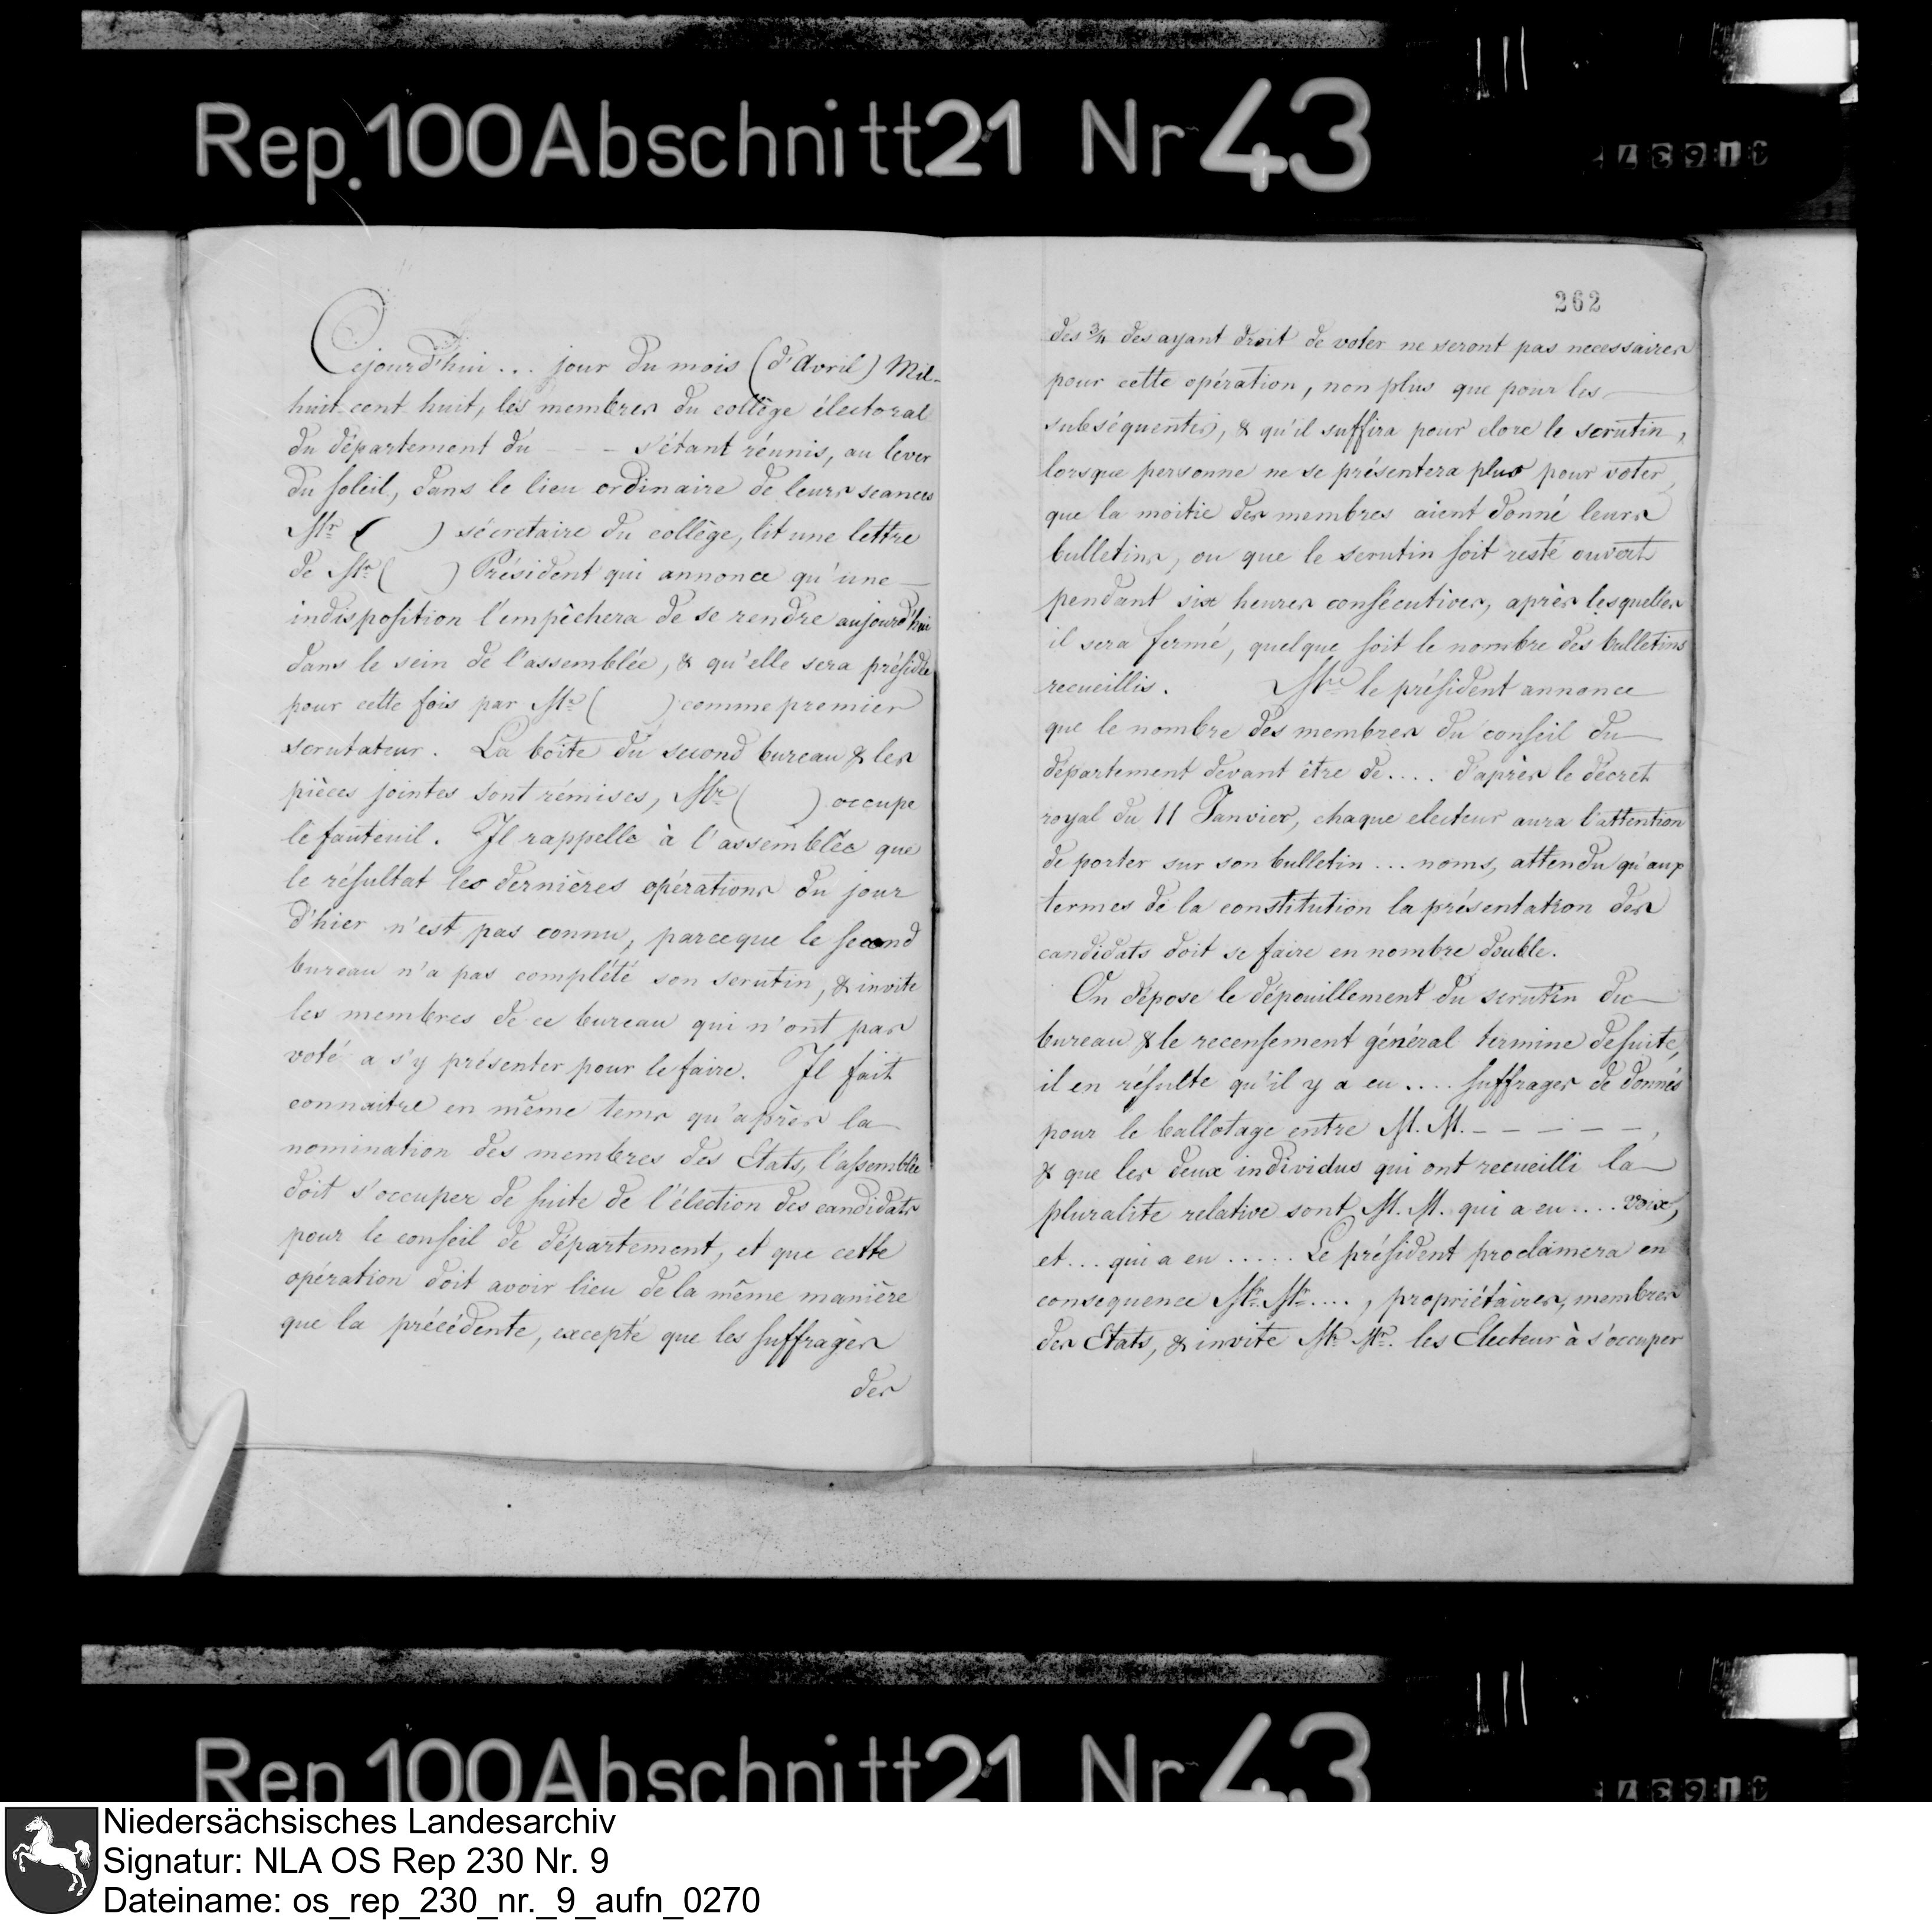 Rep.100Abschnitt21 Nr 43
Cejourd'hui ... jour du mois (d'Avril) Mil-
huit-cent-huit, les membres du collège électoral
du département du - - - s'étant réunis, au lever
du soleil, dans le lieu ordinaire de leurs seances
Mr ( ) sécretaire du collège, lit une lettre
de Mr ( ) Président qui annonce qu'une
indisposition l'empêchera de se rendre aujourd'hui
dans le sein de l'assemblée, & qu'elle sera présidée
pour cette fois par Mr ( ) comme premier
scrutateur. La boîte du second bureau & les
pièces jointes sont rémises, Mr ( ) occupe
le fauteuil. Il rappelle à l'assemblée que
le résultat les dernières opérations du jour
d'hier n'est pas connu, parceque le second
bureau n'a pas complété son scrutin, & invite
les membres de ce bureau qui n'ont pas
voté a s'y présenter pour le faire. Il fait
connaitre en même tems qu'après la
nomination des membres des Etats, l'assemblée
doit s'occuper de suite de l'élection des candidats
pour le conseil de département, et que cette
opération doit avoir lieu de la même manière
que la précédente, excepté que les suffrages
des
262
des 3/4 des ayant droit de voter ne seront pas necessaires
pour cette opération, non plus que pour les
subséquentes, & qu'il suffira pour clore le scrutin,
lorsque personne ne se présentera plus pour voter,
que la moitie des membres aient donné leurs
bulletins, ou que le scrutin soit resté ouvert
pendant six heures consécutives, après lesquelles
il sera fermé, quelque soit le nombre des bulletins
recueillis. Mr le président annonce
que le nombre des membres du conseil du
département devant être de .... d'après le décret
royal du 11 Janvier, chaque electeur aura l'attention
de porter sur son bulletin ... noms, attendu qu'aux
termes de la constitution la présentation des
candidats doit se faire en nombre double.
On dépose le dépouillement du scrutin du
bureau & le recensement général termine desuite,
il en résulte qu'il y a eu .... suffrages de donnés
pour le ballotage entre M. M. - - - - -,
& que les deux individus qui ont recueilli la
pluralite relative sont M. M. qui a eu .... voix,
et ... qui a eu ..... Le président proclamera en
consequence Mr Mr ...., propriétaires, membres
des Etats, & invite Mr Mr. les Electeur à s'occuper
Rep 100Abschnitt21 Nr 43
Niedersächsisches Landesarchiv
Signatur: NLA OS Rep 230 Nr. 9
Dateiname: os_rep_230_nr._9_aufn_0270